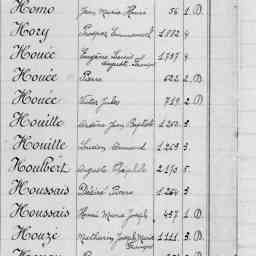 Homo Jean Marie Henri 56 1. D.
Hory Prosper Emmanuel 1772 4
Houée Eugène Louis et Auguste François 1797 4
Houée Pierre 622 2. D.
Houée Victor Jules 719 2. D.
Houille Jean Baptiste 1252 3.
Houille Lucien Armand 1253 3.
Houlbert Auguste Théophile 2190 5.
Houssais Désiré Pierre 1254 3.
Houssais Henri Marie Joseph 457 1. D.
Houzé Mathurin Joseph Marie François 1111 3. D.